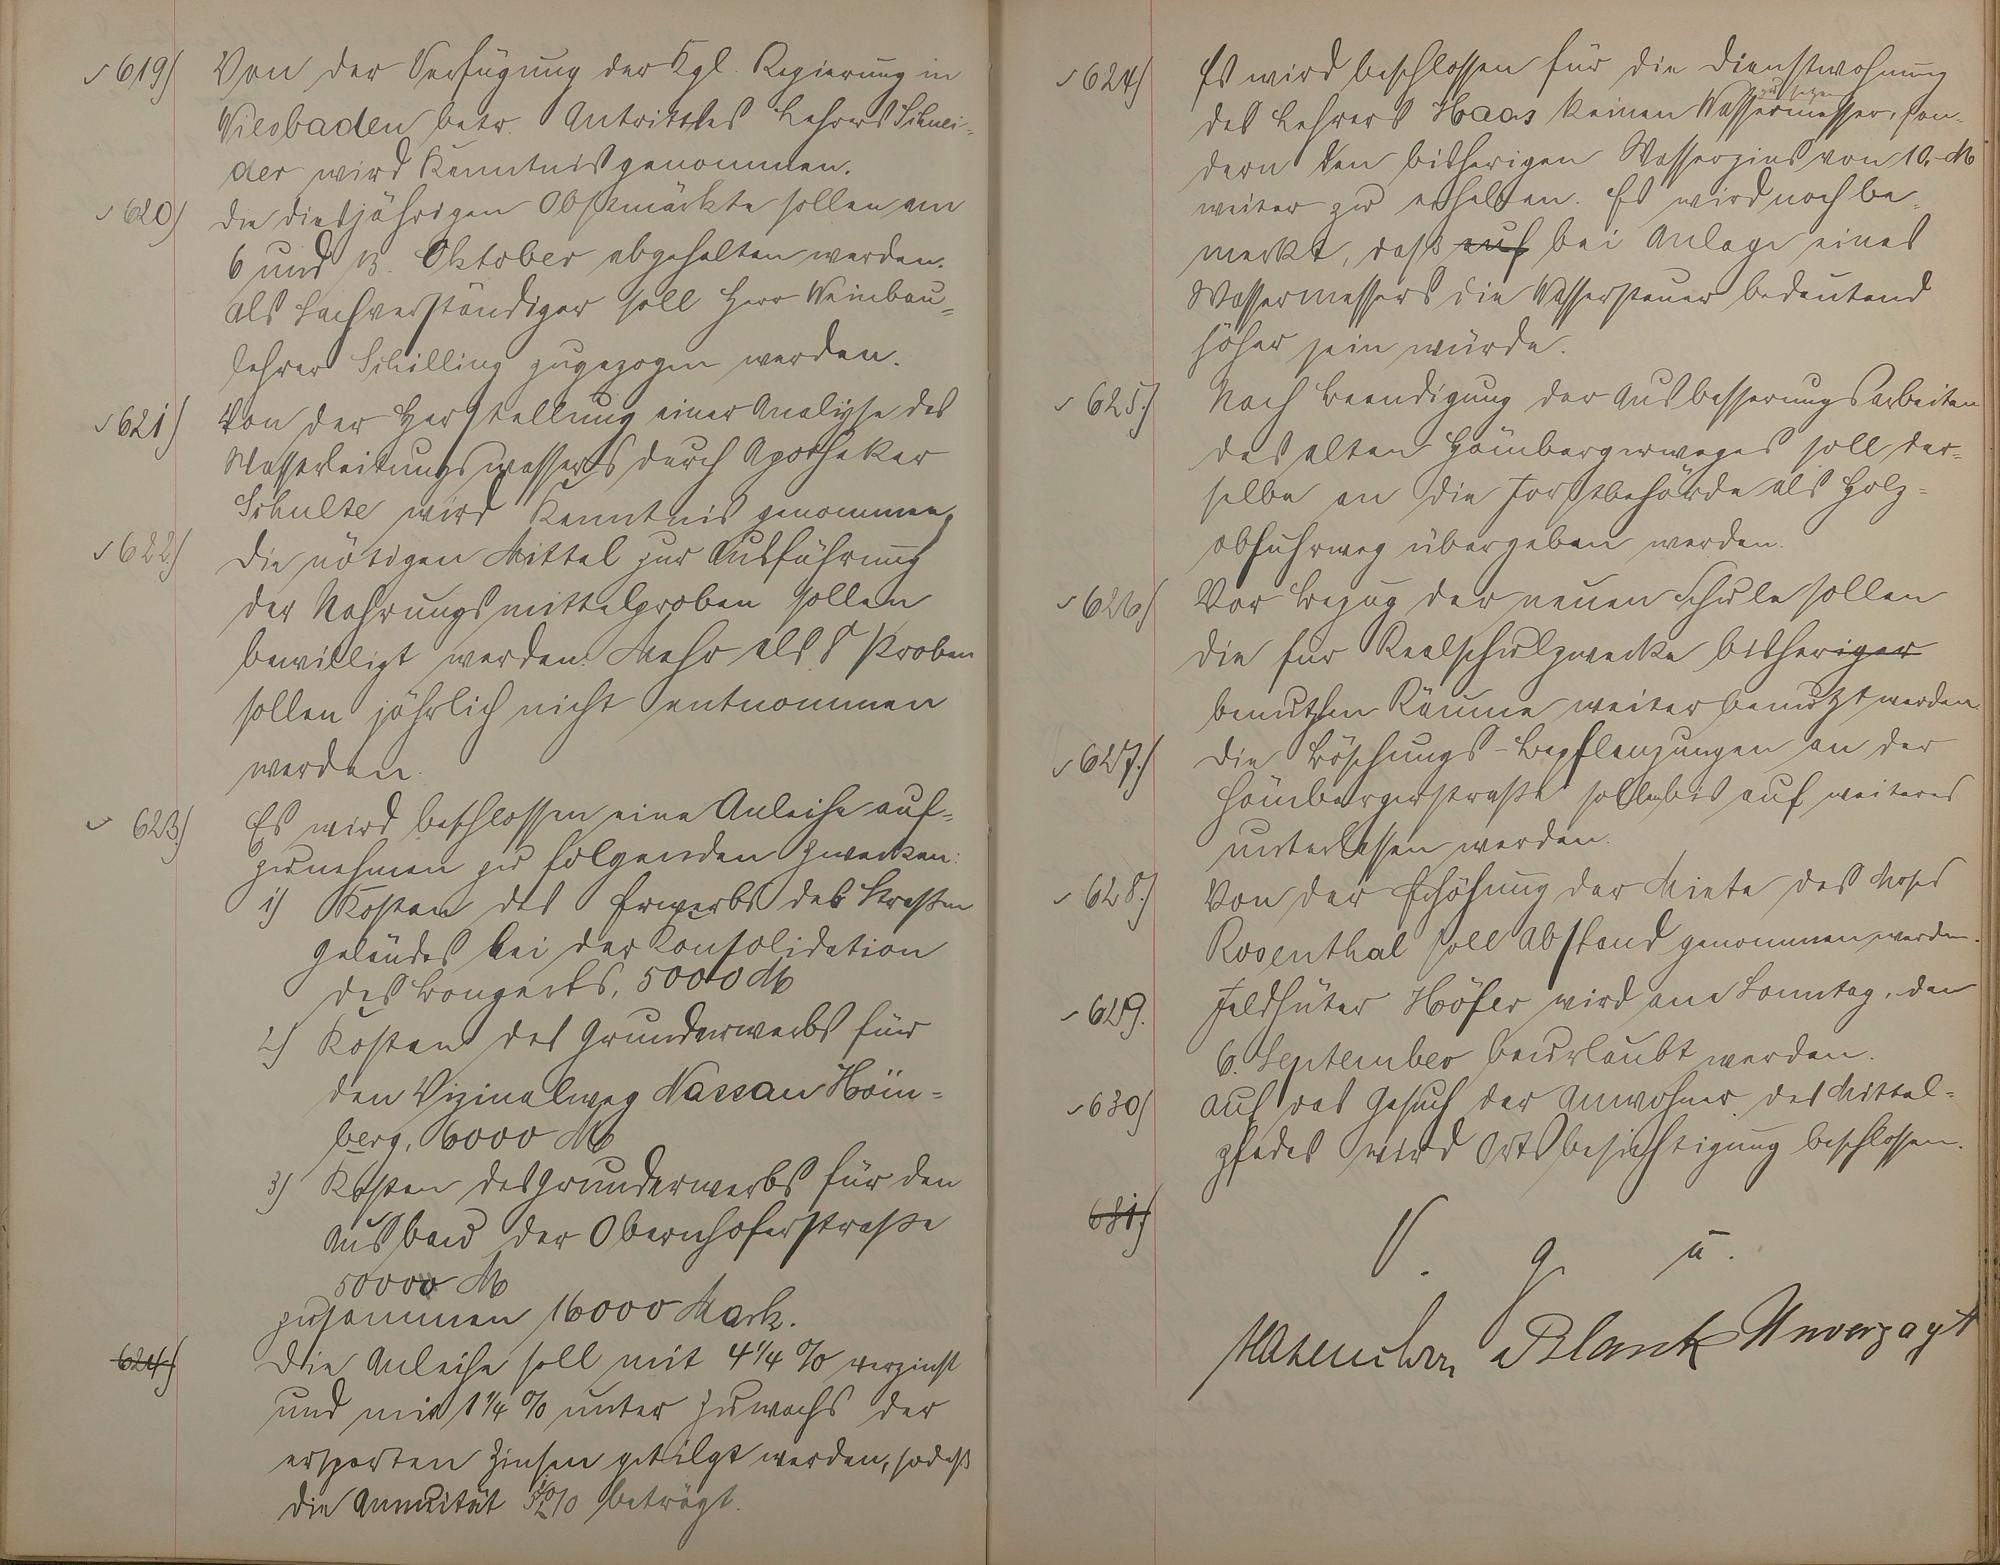 619) Von der Verfügung der Kgl. Regierung in
Wiesbaden betr. Antritt des Lehrers Schnei-
der wird Kenntnis genommen.
620) Die diesjährigen Obstmärkte sollen am
6 und 13. Oktober abgehalten werden.
Als Sachverständiger soll Herr Weinbau-
lehrer Schilling zugezogen werden.
621) Von der Herstellung einer Analyse des
Wasserleitungswassers durch Apotheker
Schulte wird Kenntnis genommen.
622) Die nötigen Mittel zur Ausführung
der Nahrungsmittelproben sollen
bewilligt werden. Mehr als 8 Proben
sollen jährlich nicht entnommen
werden.
623) Es wird beschlossen eine Anleihe auf-
zunehmen zu folgenden Zwecken:
1) Kosten des Erwerbs des Straßen
geländes bei der Konsolidation
des Bongerts, 5000 M
2) Kosten des Grunderwerbs für
den Vizinalweg Nassau Höm-
berg, 6000 M
3) Kosten des Grunderwerbs für den
Ausbau der Obernhoferstraße
5000 M
zusammen 16000 Mark.
624) Die Anleihe soll mit 4 1/4 % verzinst
und mit 1 1/4 % unter Zuwachs der
ersparten Zinsen getilgt werden, sodaß
die Annuität 5 1/2 % beträgt.
624) Es wird beschlossen für die Dienstwohnung
zu setzen
des Lehrers Haas keinen Wassermesser, son-
dern den bisherigen Wasserzins von 10,- M
weiter zu erheben. Es wird noch be-
merkt, daß auf bei Anlage eines
Wassermessers die Wassersteuer bedeutend
höher sein würde.
625.) Nach Beendigung der Ausbesserungsarbeiten
des alten Hömbergerweges soll der-
selbe an die Forstbehörde als Holz-
abfuhrweg übergeben werden.
626) Vor Bezug der neuen Schule sollen
die für Realschulzwecke bisheriger
benutzten Räume weiter benutzt werden.
627.) Die Böschungs-Bepflanzungen an der
Hömbergerstraße sollen bis auf weiteres
unterlassen werden.
628.) Von der Erhöhung der Miete des Moses
Rosenthal soll Abstand genommen werden.
629. Feldhüter Höfer wird am Sonntag, den
6. September beurlaubt werden.
630) Auf das Gesuch der Anwohner des Mittel-
pfades wird Ortsbesichtigung beschlossen.
631)
V. g. u.
Blank Unverzagt